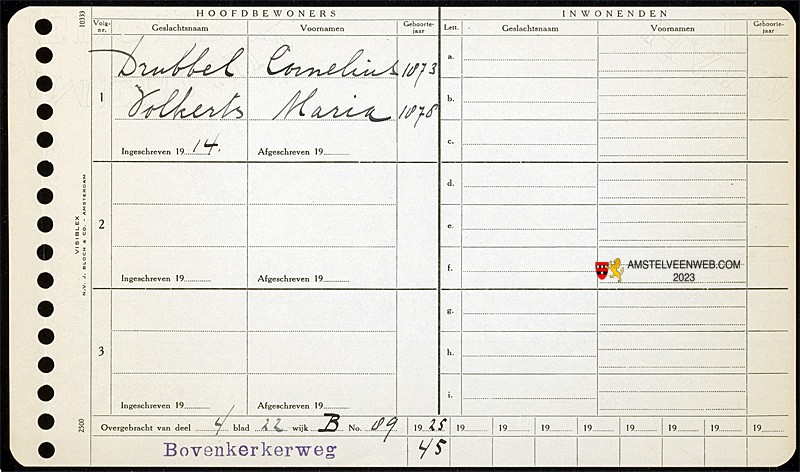 HOOFDBEWONERS
INWONENDEN
Volg-nr.
Geslachtsnaam
Voornamen
Geboorte-jaar
Lett.
Geslachtsnaam
Voornamen
Geboorte-jaar
10333
1
Drubbel Cornelius 1873
Volkerts Maria 1878
Ingeschreven 19 14.
Afgeschreven 19
2
Ingeschreven 19
Afgeschreven 19
3
Ingeschreven 19
Afgeschreven 19
a.
b.
c.
d.
e.
f.
g.
h.
i.
AMSTELVEENWEB.COM
2023
VISIBLEX
N.V. J. BLOCH & CO. - AMSTERDAM
2500
Overgebracht van deel 4 blad 22 wijk B No. 89 19 25 19 19 19 19 19 19 19 19
Bovenkerkerweg 45